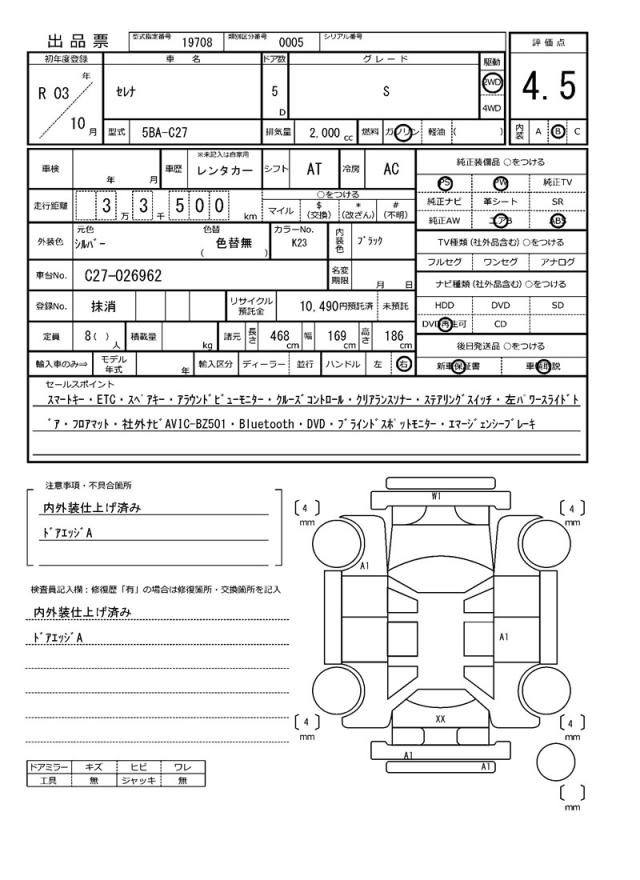 出品票 型式指定番号 19708 類別区分番号 0005 シリアル番号
初年度登録 車 名 ドア数 グレード 駆動 評価点
R 03 年 10 月 セレナ 5 D S 2WD 4WD 4.5
型式 5BA-C27 排気量 2,000 cc 燃料 ガソリン 軽油 ( ) 内装 A B C
車検 年 月 車歴 ※未記入は自家用 レンタカー シフト AT 冷房 AC 純正装備品 ○をつける
PS PW 純正TV
走行距離 3 万 3 千 5 0 0 km ○をつける 純正ナビ 革シート SR
マイル $ (交換) * (改ざん) # (不明) 純正AW エアB ABS
外装色 元色 シルバー 色替 色替無 ( ) カラーNo. K23 内装色 ブラック TV種類 (社外品含む) ○をつける
フルセグ ワンセグ アナログ
車台No. C27-026962 名変期限 月 日 ナビ種類 (社外品含む) ○をつける
登録No. 抹消 リサイクル預託金 10,490円預託済 未預託 HDD DVD SD
DVD再生可 CD
定員 8( ) 人 積載量 kg 諸元 長さ 468 cm 幅 169 cm 高さ 186 cm 後日発送品 ○をつける
輸入車のみ⇒ モデル年式 年 輸入区分 ディーラー 並行 ハンドル 左 右 新車保証書 車輌取説
セールスポイント
スマートキー・ETC・スペアキー・アラウンドビューモニター・クルーズコントロール・クリアランスソナー・ステアリングスイッチ・左パワースライドド
ア・フロアマット・社外ナビAVIC-BZ501・Bluetooth・DVD・ブラインドスポットモニター・エマージェンシーブレーキ
注意事項・不具合箇所
内外装仕上げ済み
ドアエッジA
検査員記入欄：修復歴「有」の場合は修復箇所・交換箇所を記入
内外装仕上げ済み
ドアエッジA
ドアミラー キズ ヒビ ワレ
工具 無 ジャッキ 無
W1
[ 4 ] mm [ 4 ] mm
A1
A1
XX
[ 4 ] mm [ 4 ] mm
A1
A1
[ ] mm